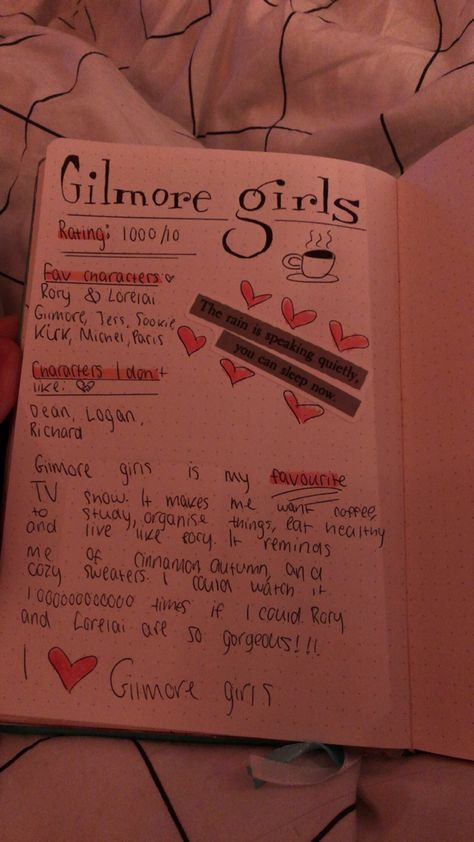 Gilmore girls
Rating: 1000/10
Fav characters:
Rory & Lorelai
Gilmore, Jess, Sookie
Kirk, Michel, Paris
The rain is speaking quietly,
you can sleep now.
Characters I don't
like:
Dean, Logan,
Richard
Gilmore girls is my favourite
TV show. It makes me want coffee,
to study, organise things, eat healthy
and live like rory. It reminds
me of cinnamon, autumn, and
cozy sweaters. I could watch it
100000000000 times if I could. Rory
and Lorelai are so gorgeous!!!
I Gilmore girls